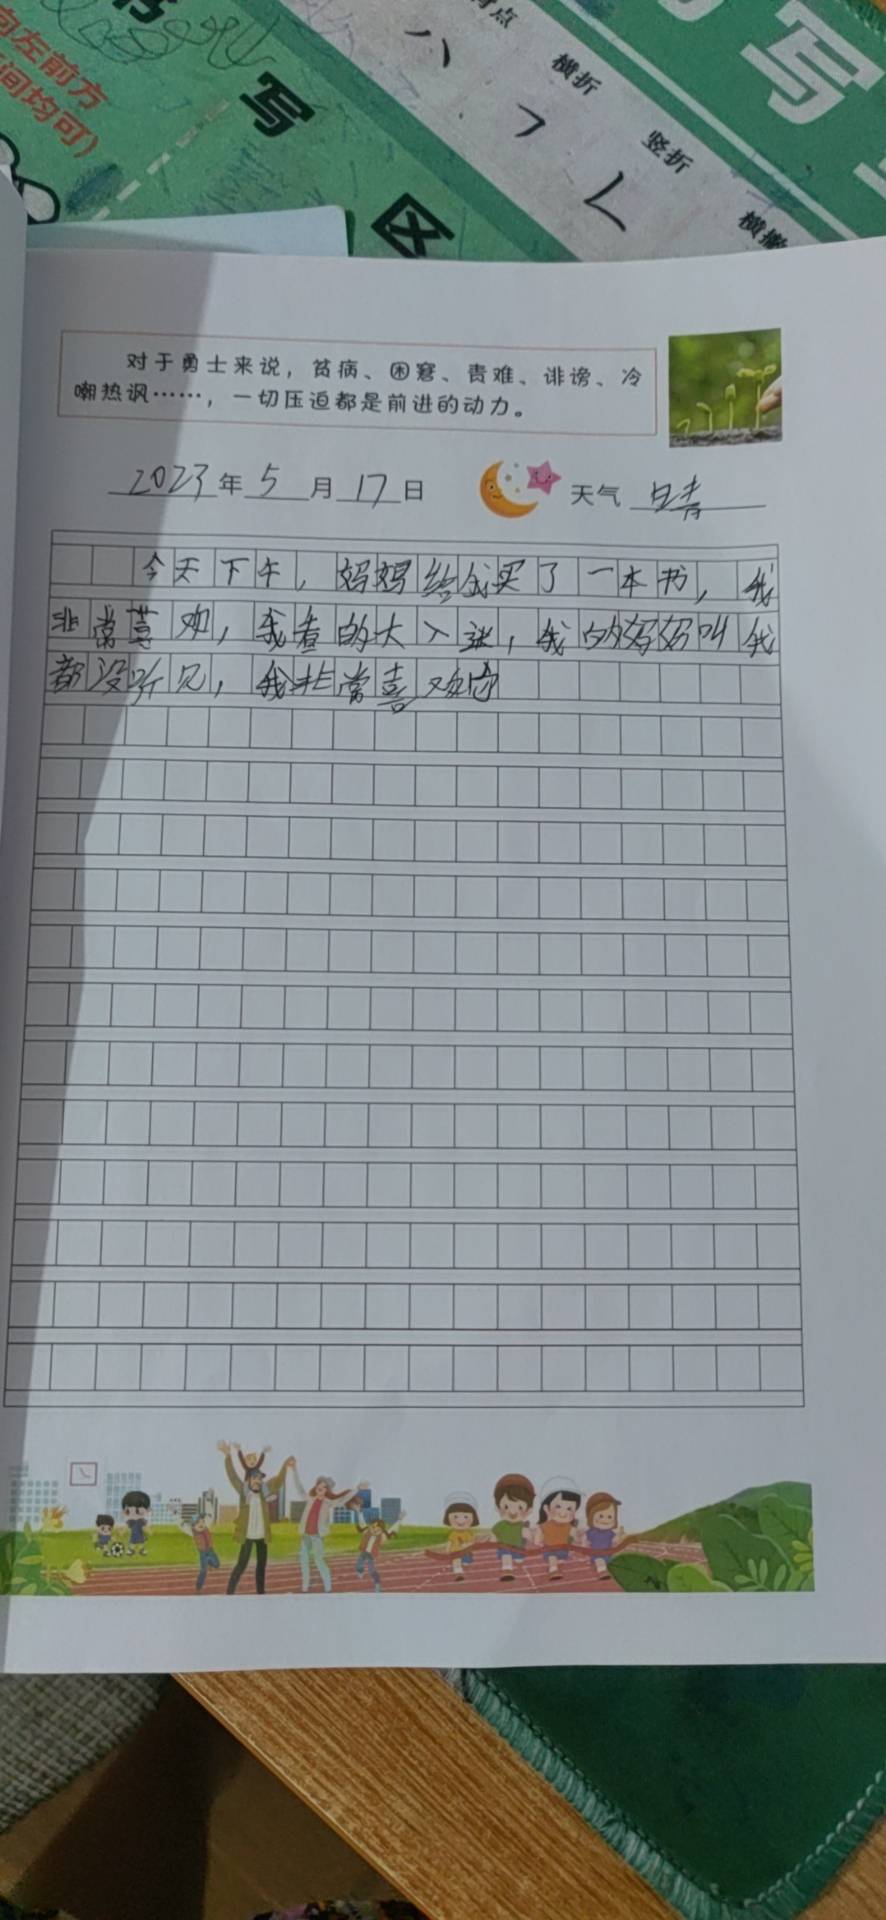 书写
写
特点
横折
竖折
横撇
向左前方
间均可）
写
区
对于勇士来说，贫病、困窘、责难、诽谤、冷
嘲热讽……，一切压迫都是前进的动力。
2023年5月17日 天气 晴
今天下午，妈妈给我买了一本书，我
非常喜欢，我看的太入迷，我的妈妈叫我
都没听见，我非常喜欢